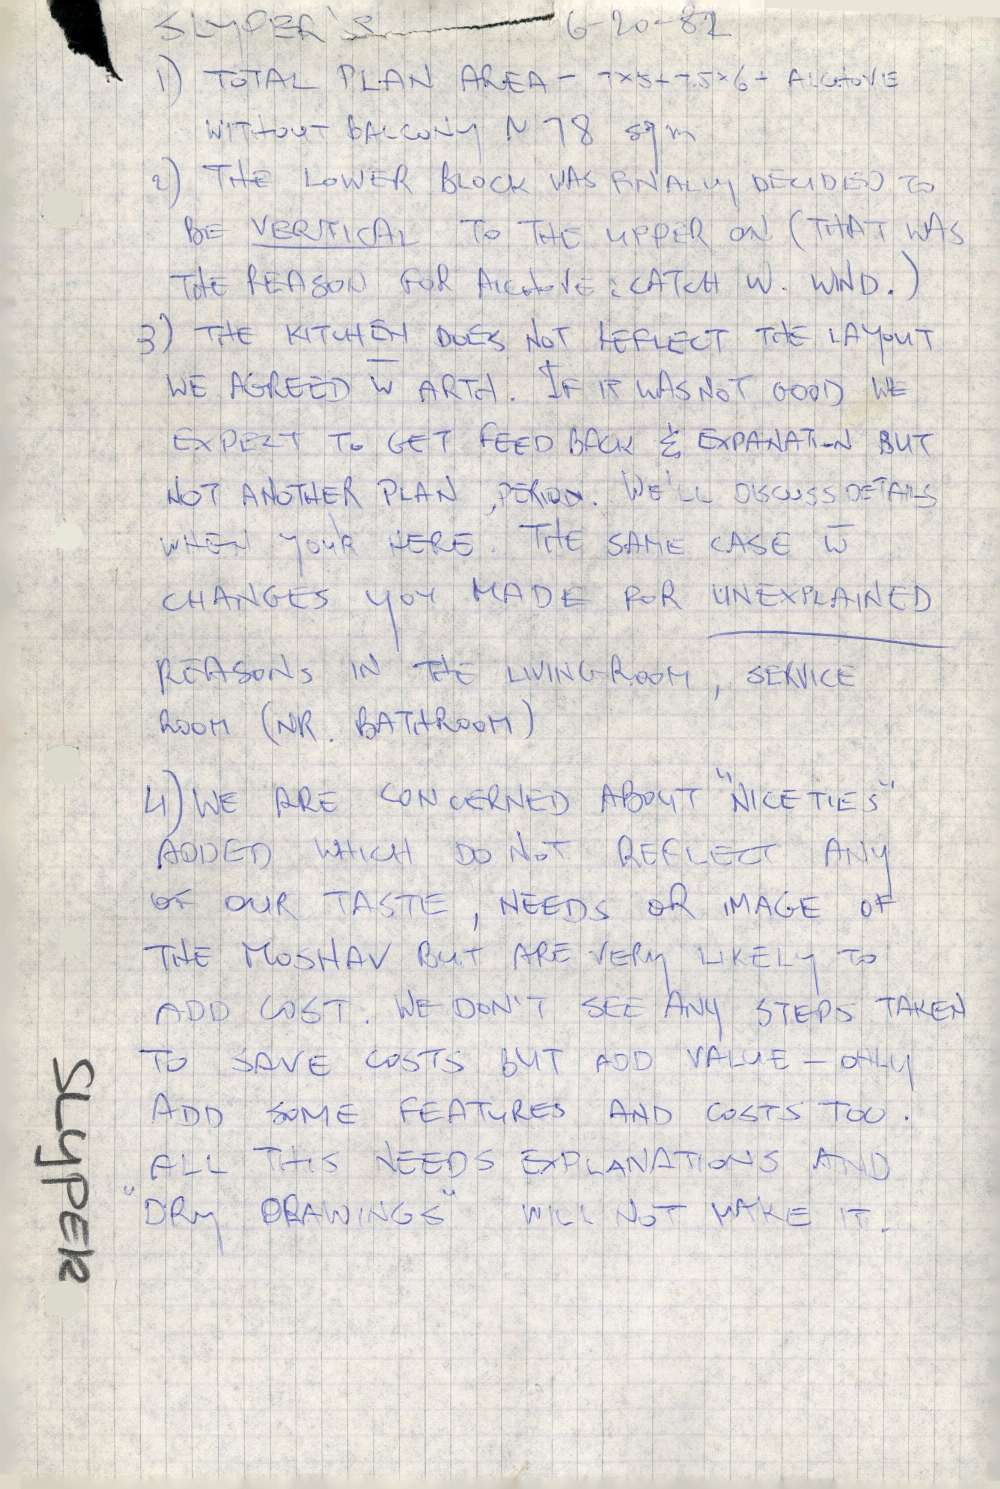 SLYPER'S 6-20-82
1) TOTAL PLAN AREA - 7×5+7.5×6+ ALCHOVE
WITHOUT BALCONY ~ 78 sqm
2) THE LOWER BLOCK WAS FINALLY DECIDED TO
BE VERITICAL TO THE UPPER ON (THAT WAS
THE REASON FOR ALCHOVE: CATCH W. WIND.)
3) THE KITCHEN DOES NOT REFLECT THE LAYOUT
WE AGREED W̄ ARTH. IF IT WAS NOT GOOD WE
EXPECT TO GET FEED BACK & EXPANATION BUT
NOT ANOTHER PLAN, PERIOD. WE'LL DISCUSS DETAILS
WHEN YOUR HERE. THE SAME CASE W̄
CHANGES YOY MADE FOR UNEXPLAINED
REASONS IN THE LIVING-ROOM, SERVICE
ROOM (NR. BATHROOM)
4) WE ARE CONCERNED ABOUT "NICETIES"
ADDED WHICH DO NOT REFLECT ANY
OF OUR TASTE, NEEDS OR IMAGE OF
THE MOSHAV BUT ARE VERY LIKELY TO
ADD COST. WE DON'T SEE ANY STEPS TAKEN
TO SAVE COSTS BUT ADD VALUE - ONLY
ADD SOME FEATURES AND COSTS TOO.
ALL THIS NEEDS EXPLANATIONS AND
"DRY DRAWINGS" WILL NOT MAKE IT.
SLYPER